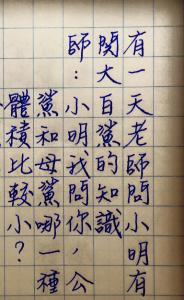 有一天老師問小明有
関大百鯊的知識
師：小明，我問你，公
鯊和母鯊哪一種
體積比較小？